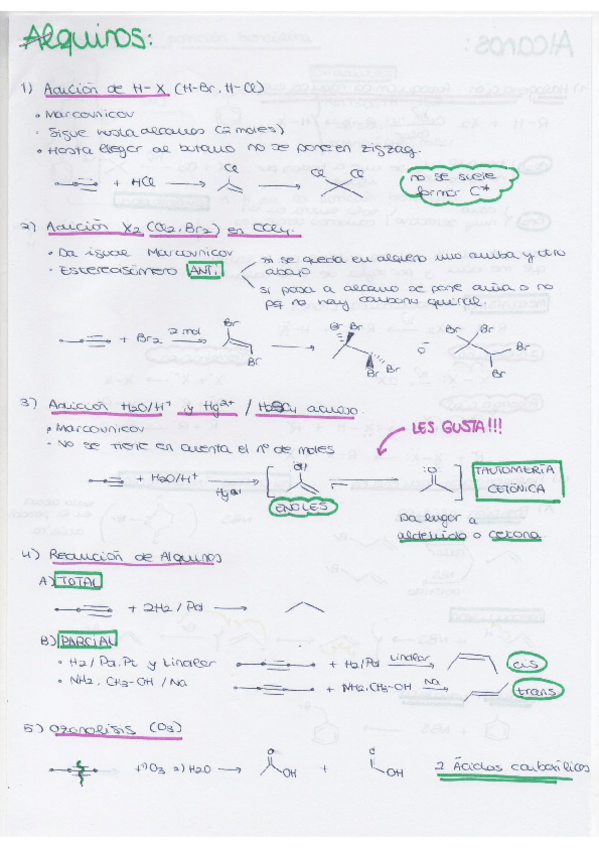 Alquinos:
1) Adición de H-X (H-Br, H-Cl)
• Marcovnicov
• Sigue hasta alcanos (2 moles)
• Hasta llegar al butano no se pone en zigzag.
+ HCl
Cl
Cl Cl
no se suele
formar C*
2) Adición X2 (Cl2, Br2) en CCl4.
• Da igual Marcovnicov
• Estereoisómero ANTI
si se queda en alqueno uno arriba y otro
abajo
si pasa a alcano se pone cuña o no
pq no hay carbono quiral.
+ Br2
2 mol
Br
Br
Br Br
Br Br
o
Br
Br
Br
Br
3) Adición H2O/H+ y Hg2+ / H2SO4 acuoso.
• Marcovnicov
• No se tiene en cuenta el nº de moles
LES GUSTA!!!
+ H2O/H+
OH
ENOLES
O
TAUTOMERÍA
CETÓNICA
Da lugar a
aldehído o cetona
4) Reducción de Alquinos
A) TOTAL
+ 2H2 / Pd
B) PARCIAL
• H2 / Pd, Pt y Lindlar
+ H2/Pd
Lindlar
cis
• NH2, CH3-OH / Na
+ NH2, CH3-OH
Na
trans
5) Ozonolisis (O3)
+ 1) O3 2) H2O
O
OH
+
OH
2 Ácidos carboxílicos